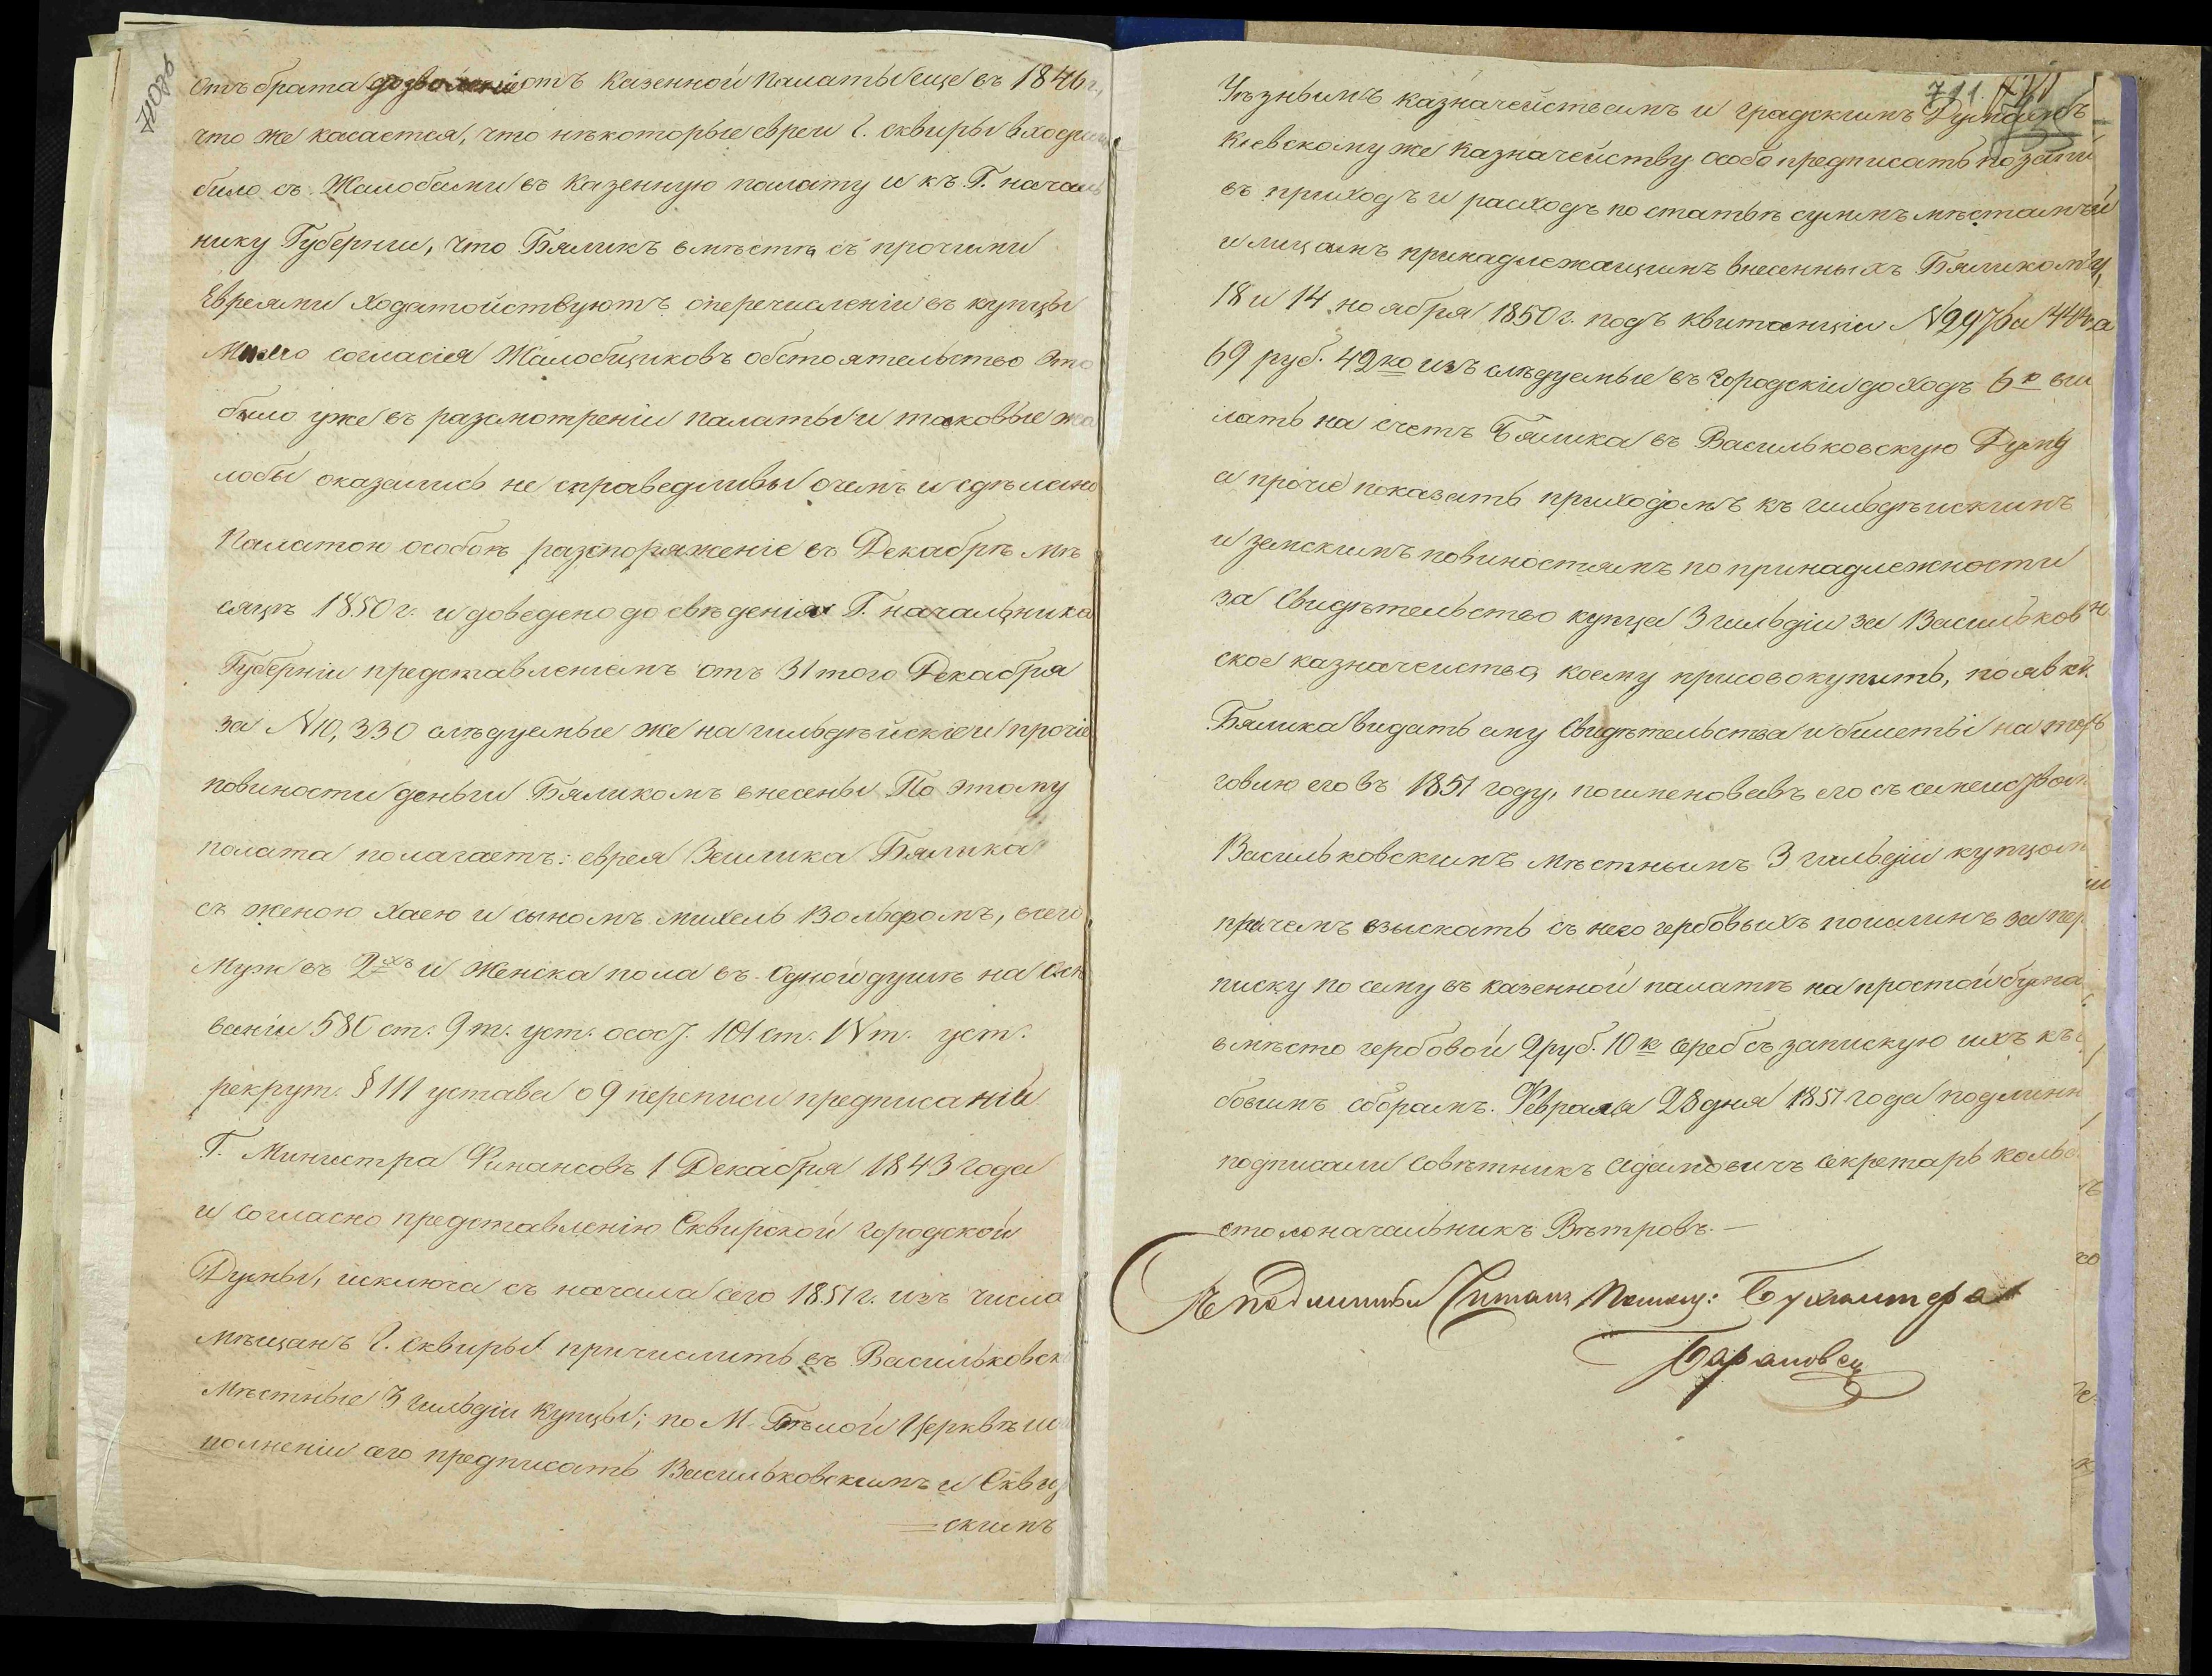 710об
отъ брата дозволеніе отъ Казенной Палаты еще въ 1846 г.,
что же касается, что нѣкоторые евреи г. Сквиры входи
было съ Жалобами въ Казенную палату и къ Г. началь
нику Губерніи, что Бяликъ вмѣстѣ съ прочими
Евреями ходатойствуютъ о перечисленіи въ купцы
согласія Жалобщиковъ обстоятельство Это
было уже въ разсмотреніи палаты и таковые жа
лобы оказались не справедливы о чемъ и сдѣлано
Палатою особое разпоряженіе въ Декабрѣ мѣ
сяцѣ 1850 г. и доведено до свѣденія Г. начальника
Губерніи представленіемъ отъ 31 того Декабря
за N 10,330 слѣдуемые же на гильдѣйскіе и прочіе
повиности деньги Бяликомъ внесены По этому
полата полагаетъ: еврея Зейлика Бялика
съ женою Хаею и сыномъ Михель Вольфомъ, всего
Муж въ 2хъ и Женска пола въ одной душѣ на осн
ваніи 580 ст. 9 т. уст. о сост. 101 ст. IV т. уст.
рекрут. § 111 устава о 9 переписи предписаніи
Г. Министра Финансовъ 1 Декабря 1843 года
и согласно представленію Сквирской городской
Думы, исключа съ начала сего 1851 г. изъ числа
мѣщанъ г. Сквиры причислить въ Васильковск
Мѣстные 3 гильдіи Купцы; по М. Бѣлой Церквѣ и
полненіи сего предписать Васильковскимъ и Сквир
= скимъ
711.
Уѣзнымъ казначействамъ и градскимъ Думамъ
Кіевскому же Казначейству особо предписать по запи
въ приходъ и расходъ по статьѣ суммъ мѣстамъ и
и лицамъ принадлежащимъ внесенныхъ Бяликомъ
18 и 14 ноября 1850 г. подъ квитанціи
69 руб. 42 ко изъ слѣдуемые въ Городскій доходъ 6 к выс
лать на счетъ Бялика въ Васильковскую Думу
а прочіе показать приходомъ къ гильдѣискимъ
и земскимъ повиностямъ по принадлежности
за Свидѣтельство купца 3 гильдіи за Васильков
ское казначейство, коему присовокупить, по явкѣ
Бялика видать ему Свидѣтельства и билеты на тор
говлю его въ 1851 году, поименовавъ его съ семейством
Васильковскимъ мѣстнымъ 3 гильдіи купцом
причемъ взыскать съ него гербовыхъ пошлинъ за пер
писку по сему въ казенной палатѣ на простой бума
вмѣсто гербовой 2 руб. 10 к сереб съ запискую ихъ къ
бовымъ сборамъ. Февраля 28 дня 1851 года подлинн
подписали Совѣтникъ Адамовичъ Секретарь
столоначальникъ Вѣтровъ. —
Съ подлиннымъ Читалъ Помощ: Бухгалтера